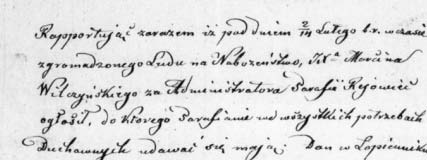 Rapportując zarazem iż pod dniem 2/14 Lutego b.r. w czasie
zgromadzonego Ludu na Nabożeństwo, JXa Marcina
Wilczyńskiego za Administratora Parafii Rejowiec
ogłosił, do którego Parafianie we wszystkich potrzebach
Duchownych udawać się mają Dan w Łopienniku